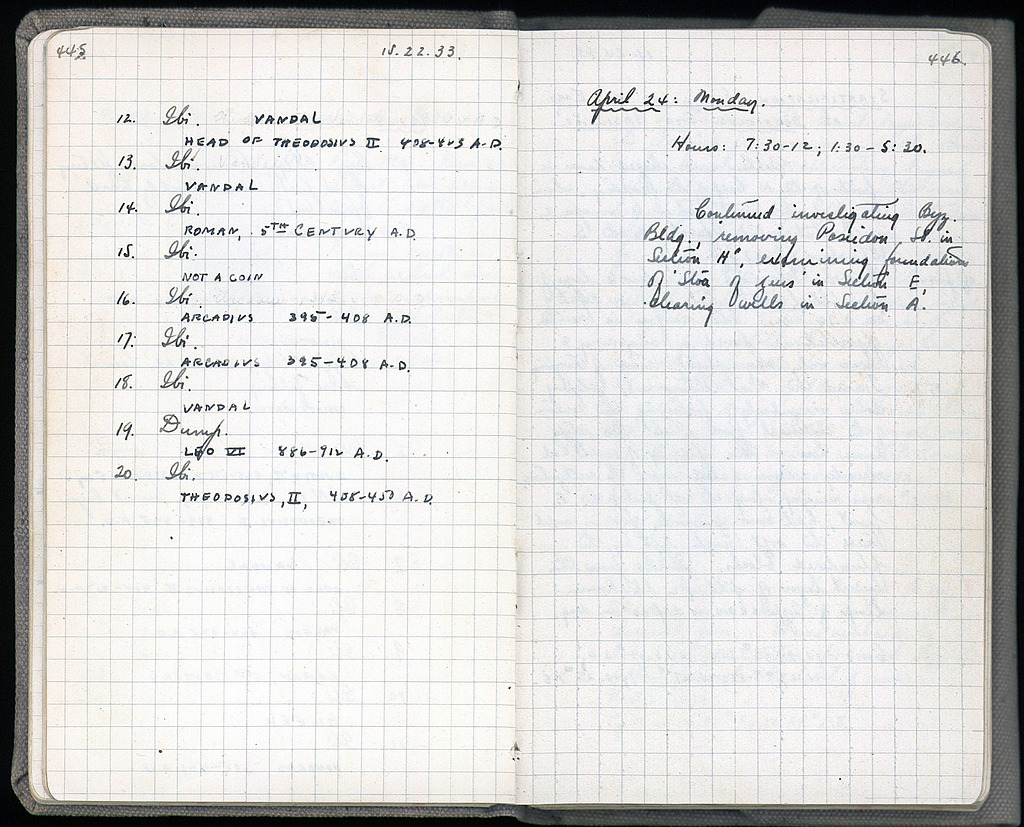 445
12. Ibi. VANDAL
HEAD OF THEODOSIUS II 408-443 A.D.
13. Ibi.
VANDAL
14. Ibi.
ROMAN, 5TH CENTURY A.D.
15. Ibi.
NOT A COIN
16. Ibi.
ARCADIUS 395-408 A.D.
17. Ibi.
ARCADIUS 395-408 A.D.
18. Ibi.
VANDAL
19. Dump.
LEO VI 886-912 A.D.
20. Ibi.
THEODOSIUS, II, 408-450 A.D.
446.
April 24: Monday.
Hours: 7:30-12; 1:30-5:30.
Continued investigating Byz.
Bldg., removing Poseidon St. in
Section H', examining foundations
of 'Stoa of Zeus' in Section E,
clearing wells in Section A.